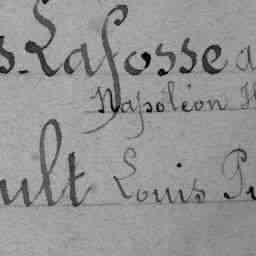 s. Lafosse a
Napoléon H
ult Louis Pr